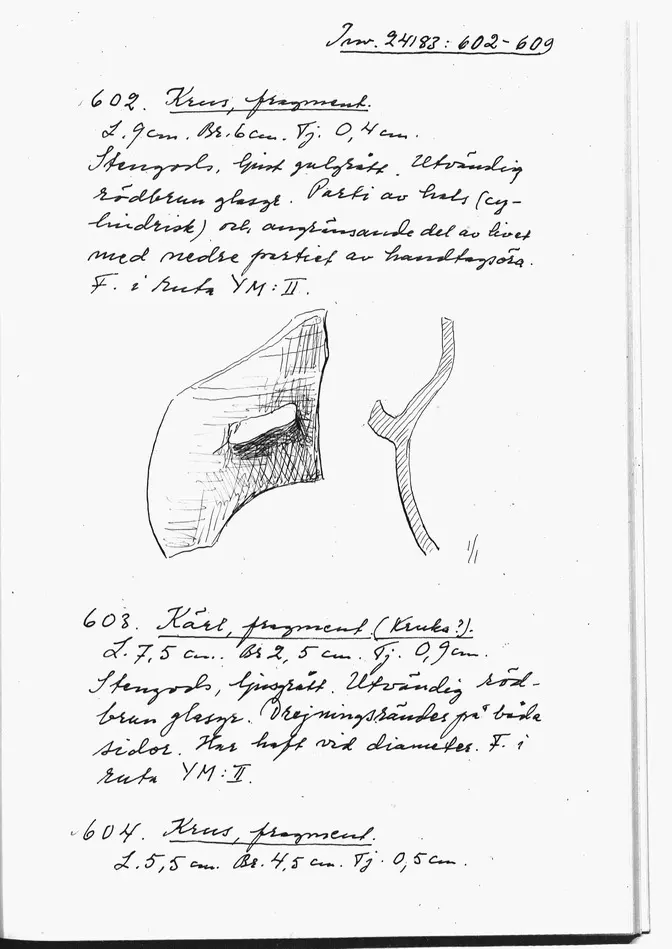 Inv. 24183: 602-609
602. Krus, fragment.
L. 9 cm. Br. 6 cm. Tj. 0,4 cm.
Stengods, ljust gulgrått. Utvändig
rödbrun glasyr. Parti av hals (cy-
lindrisk) och angränsande del av livet
med nedre partiet av handtagsöra.
F. i ruta YM: II.
1/1
603. Kärl, fragment (Kruka?).
L. 7,5 cm. Br 2,5 cm. Tj. 0,9 cm.
Stengods, ljusgrått. Utvändig röd-
brun glasyr. Drejningsränder på båda
sidor. Har haft vid diameter. F. i
ruta YM: II.
604. Krus, fragment.
L. 5,5 cm. Br. 4,5 cm. Tj. 0,5 cm.